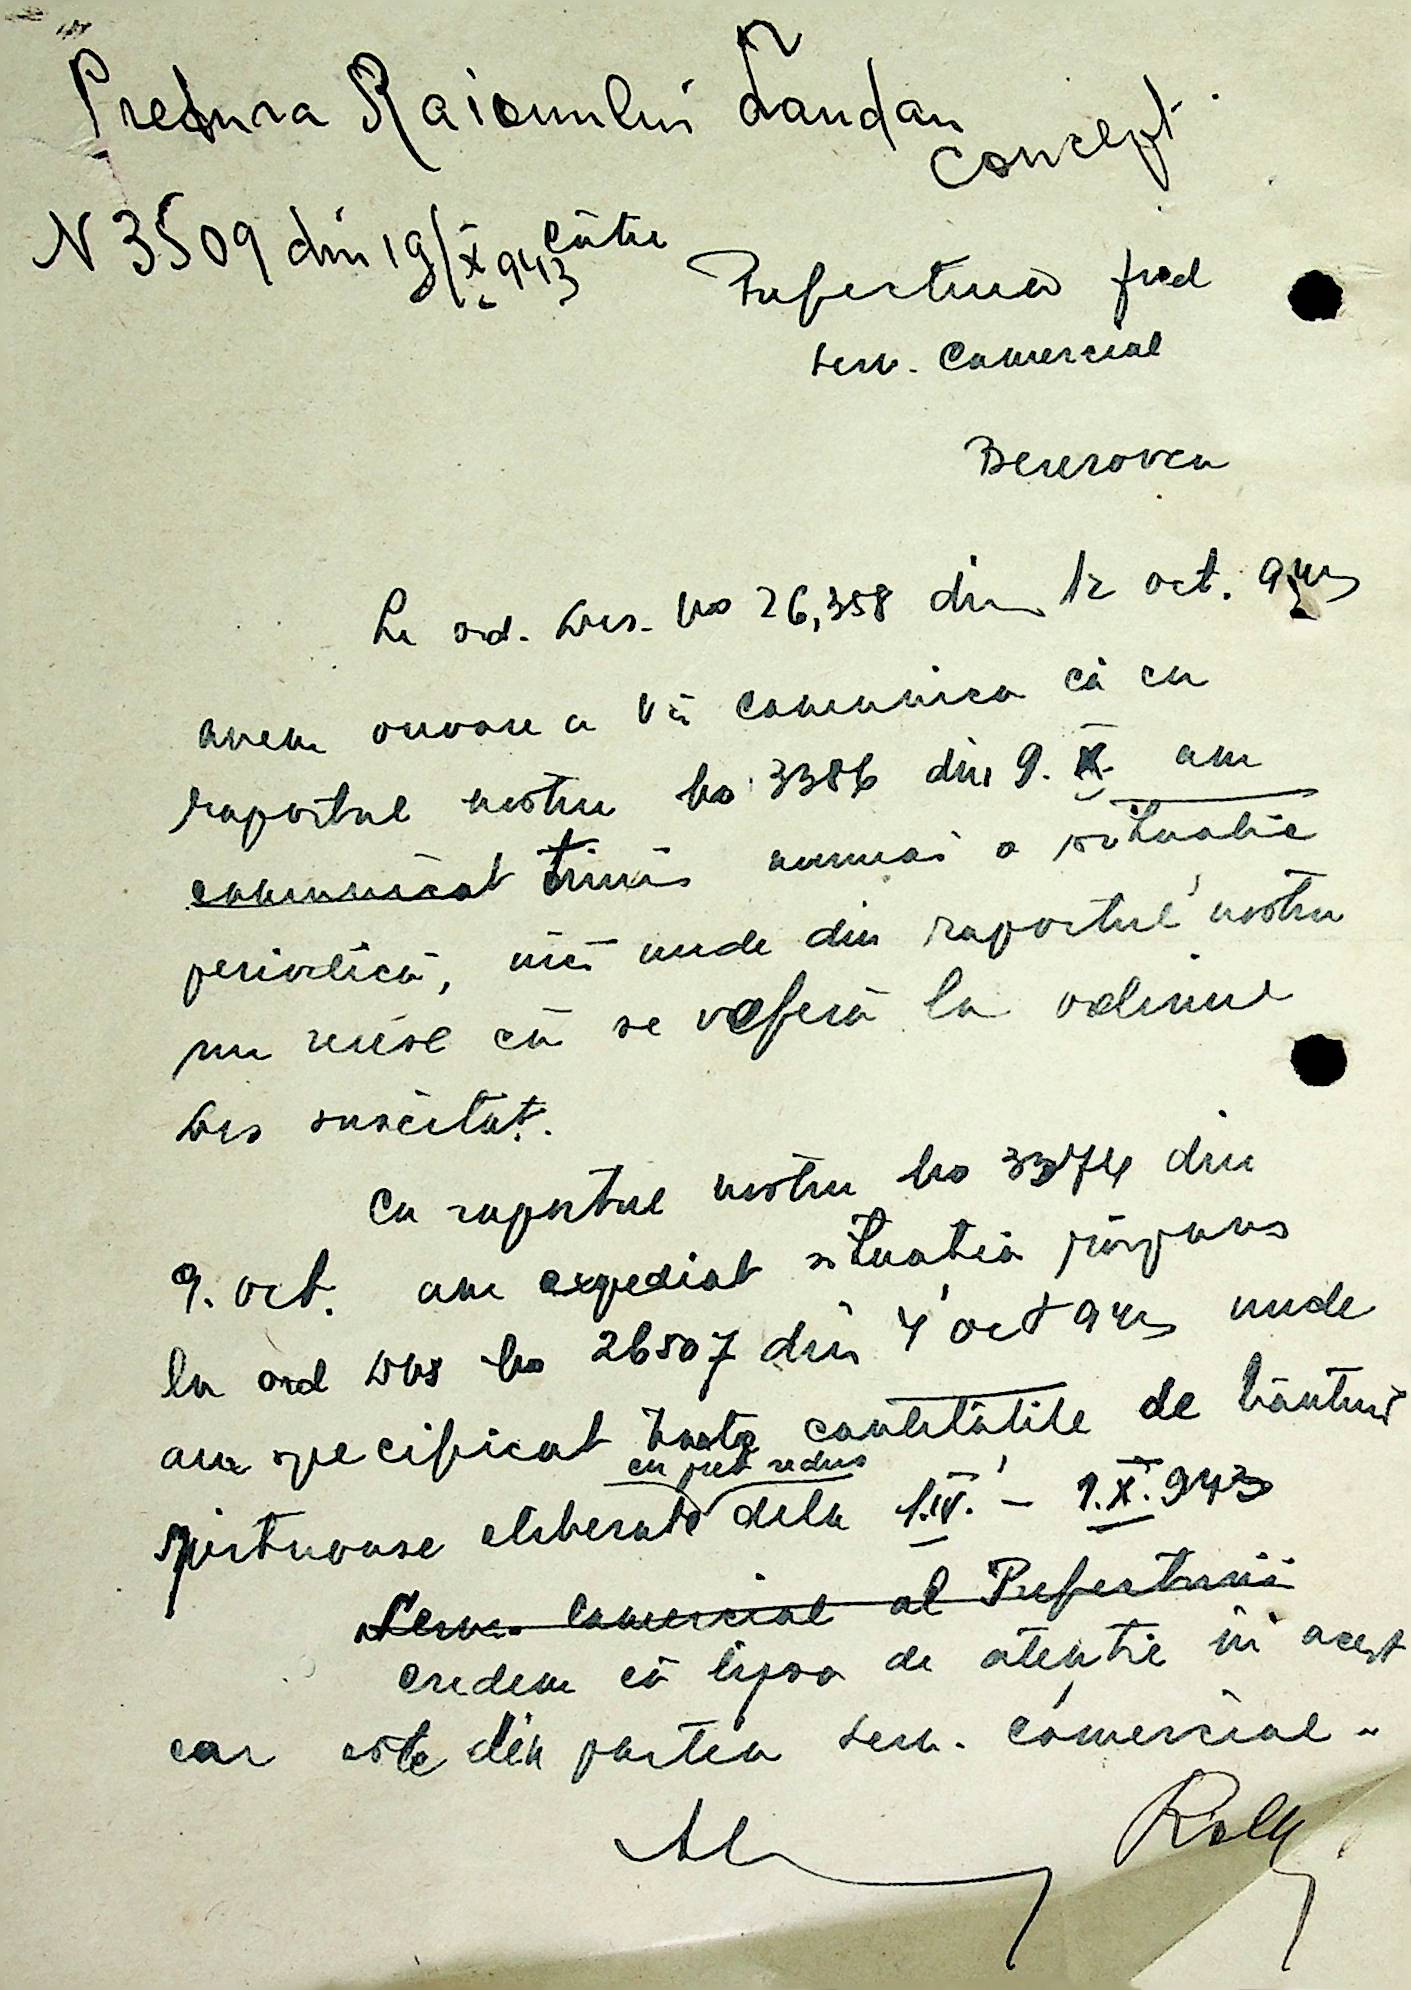 Pretura Raionului Landau
concept
N 3509 din 19/X 943 către
Prefectura jud
serv. Comercial
Berezovca
La ord. Dvs. No 26,358 din 12 oct. 943
avem onoare a Vă comunica că cu
raportul nostru No 3386 din 9. X. am
comunicat trimis numai o situație
periodică, nici unde din raportul nostru
nu reiese că se referă la ordinul
Dvs suscitat.
Cu raportul nostru No 3374 din
9. oct. am expediat situația răspuns
la ord Dvs No 26507 din 4 oct 943 unde
am specificat toate cantitățile de băuturi
cu preț redus
spirtuoase eliberate dela 1.IV. – 1.X.943
Serv. Comercial al Prefecturii
credem că lipsa de atenție în acest
caz este din partea serv. comercial.